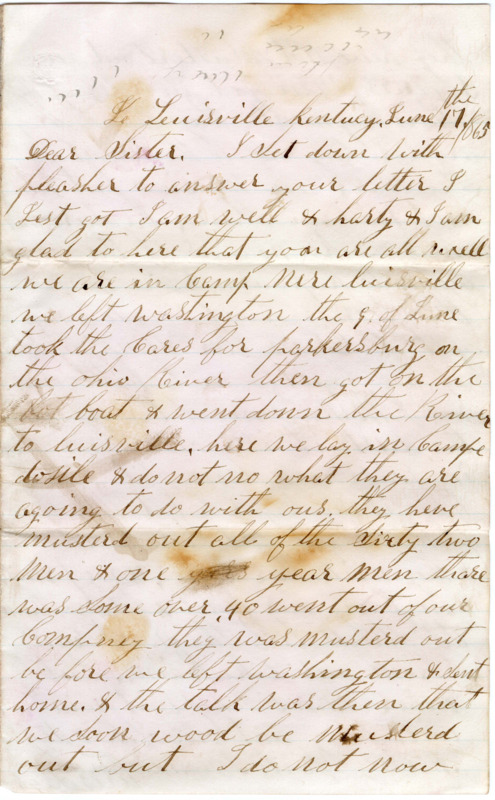 Luisville Kentucy. June the 17 / 1865
Dear Sister. I set down with
pleasher to answer your letter I
Lest got I am well & harty & I am
glad to here that yoor are all well
we are in Camp nere luisville
we left washington the 9. of June
took the Cares for parkersburg on
the ohio River then got on the
boat & went down the River
to luisville. here we lay in Campe
& do not no what they are
agoing to do with ous. they heve
musterd out all of the sixty two
men & one year men thare
was some over 40 went out of our
Compney they was musterd out
be fore we left washington & sent
home. & the talk was then that
we soon wood be musterd
out but I do not now